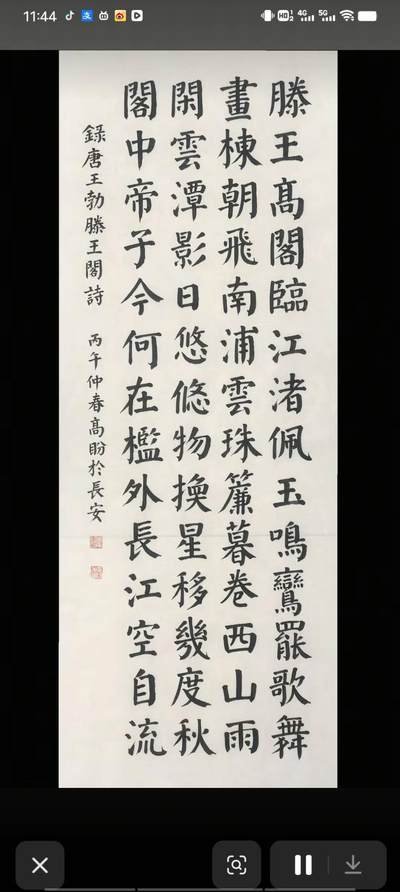 11:44
HD 1 2 4G 5G
滕王髙閣臨江渚佩玉鳴鸞罷歌舞
畫棟朝飛南浦雲珠簾暮卷西山雨
閑雲潭影日悠悠物換星移幾度秋
閣中帝子今何在檻外長江空自流
錄唐王勃滕王閣詩 丙午仲春髙盼於長安